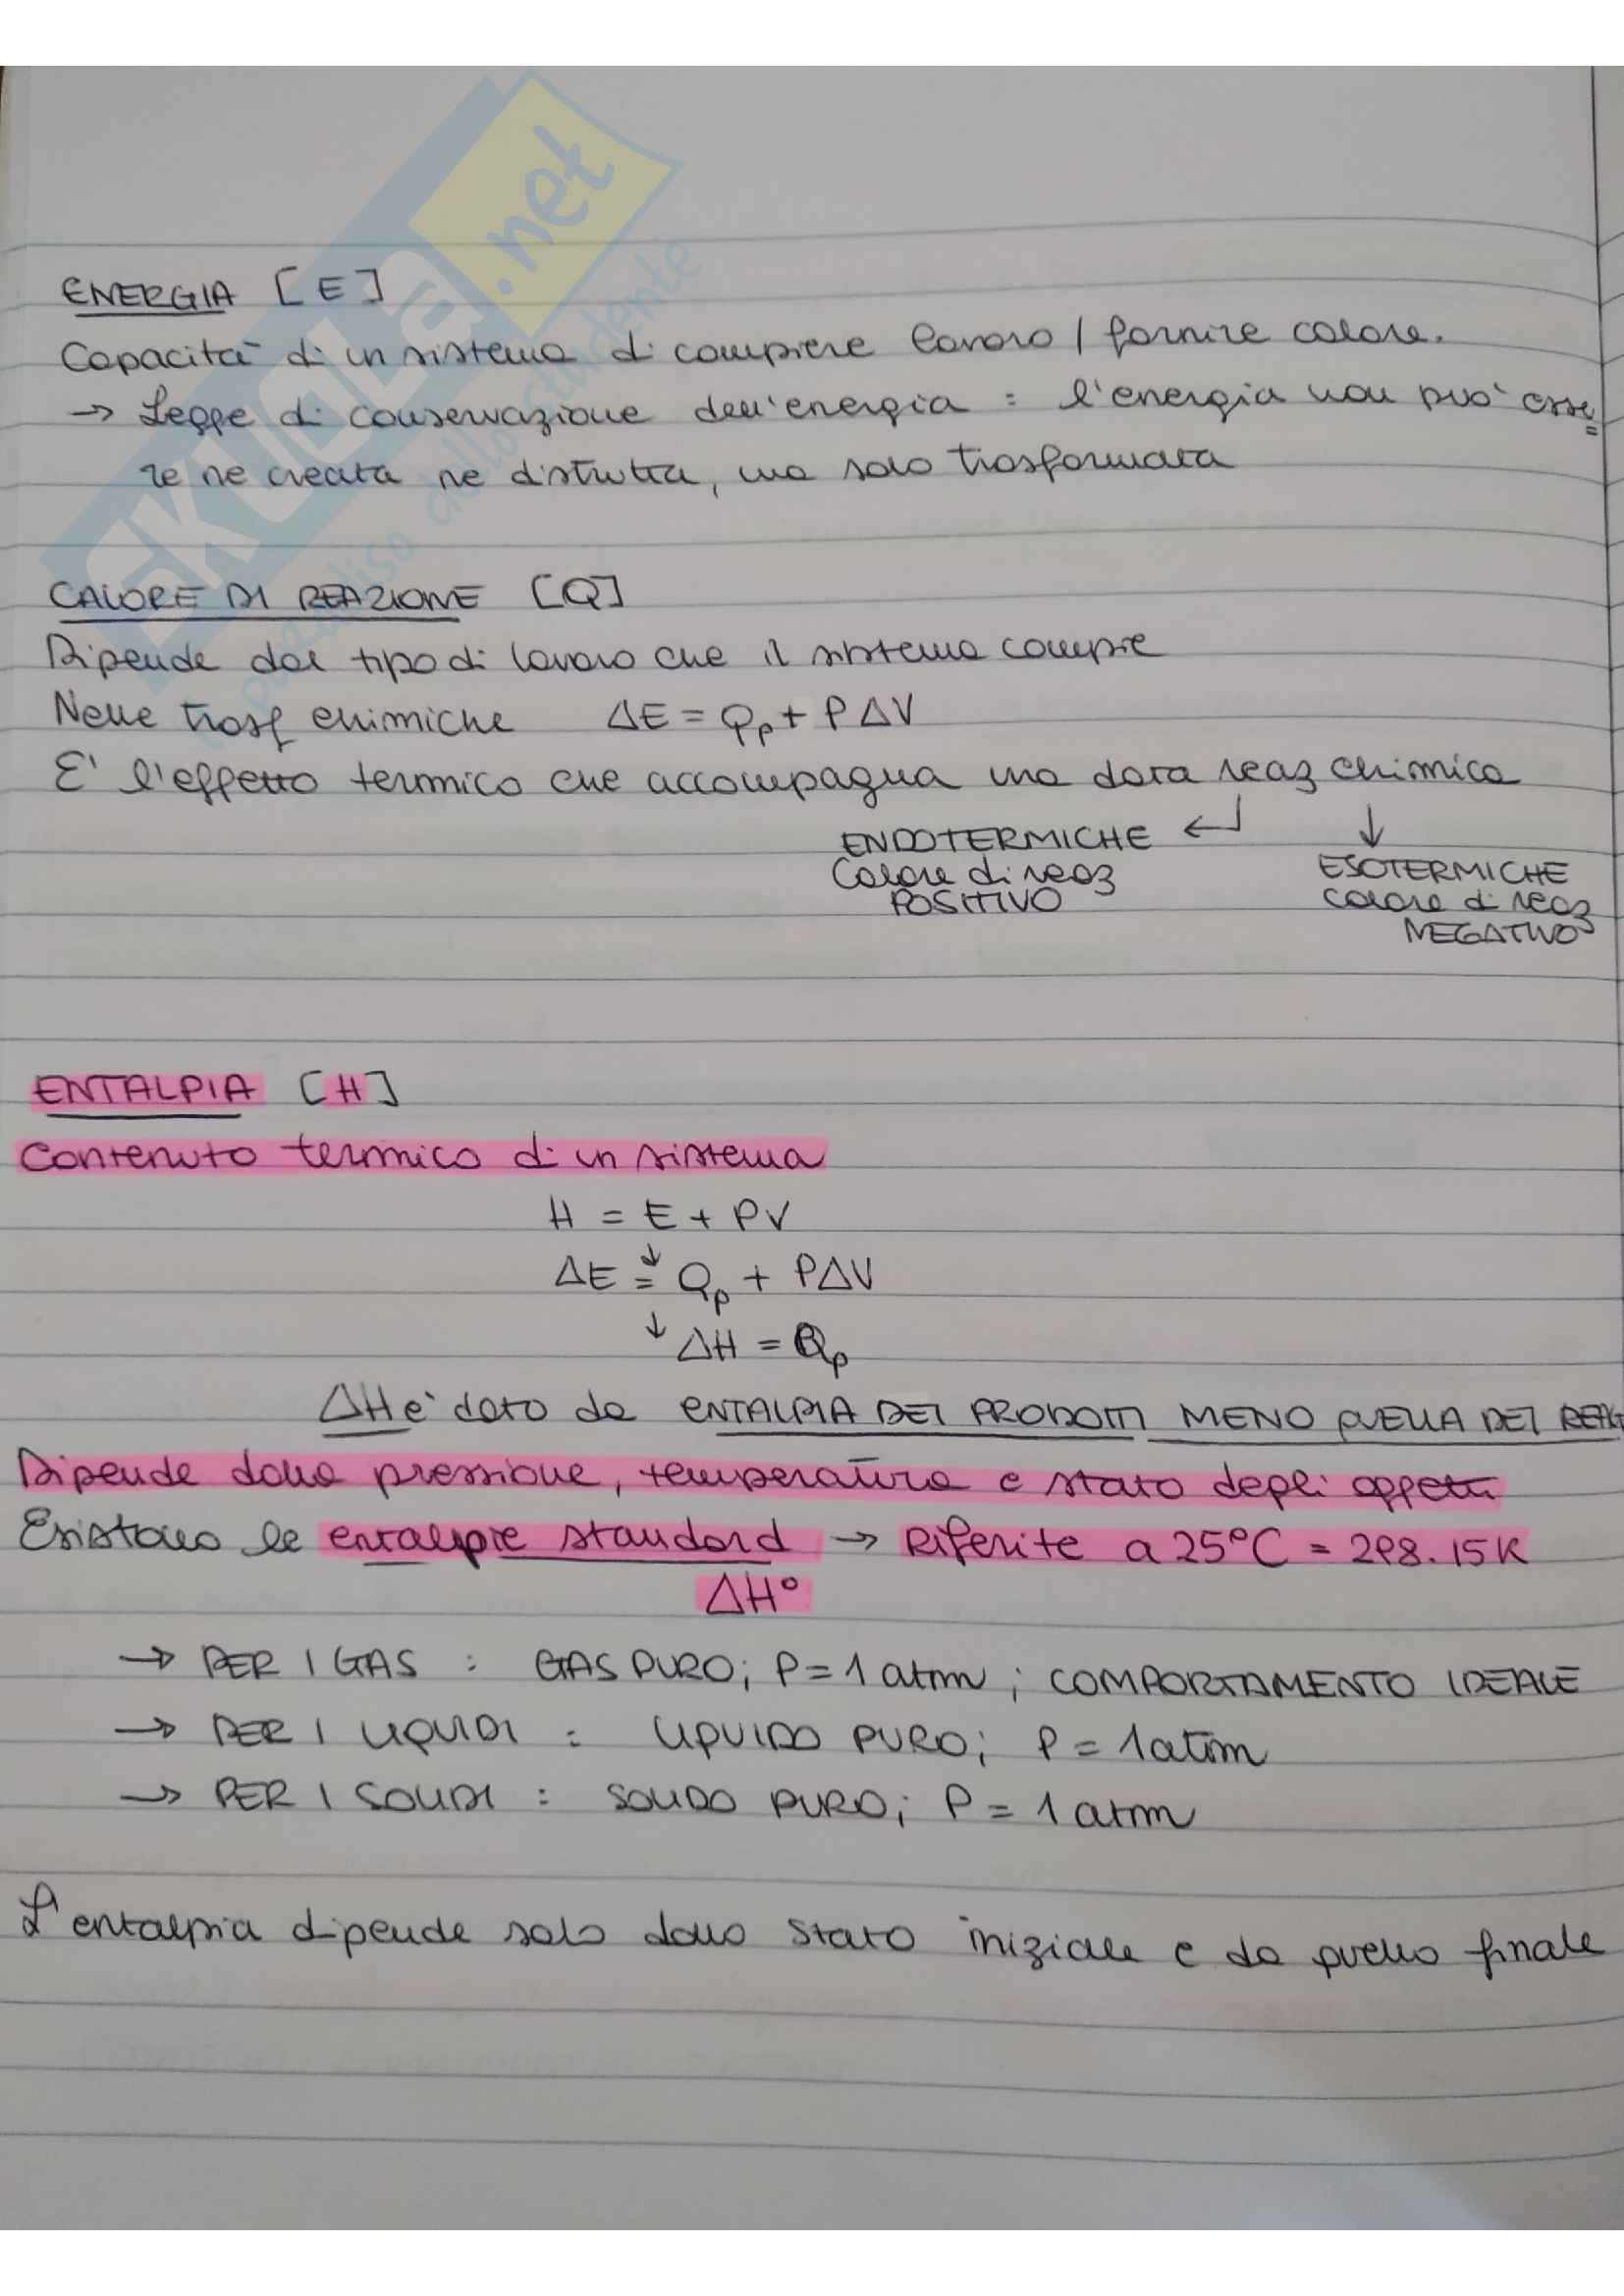 SKUOLA.net
il paradiso dello studente
ENERGIA [E]
Capacità di un sistema di compiere lavoro / fornire calore.
→ Legge di conservazione dell'energia : l'energia non può esse=
re ne creata ne distrutta, ma solo trasformata
CALORE DI REAZIONE [Q]
Dipende dal tipo di lavoro che il sistema compie
Nelle trasf chimiche ΔE = Qp + PΔV
E' l'effetto termico che accompagna una data reaz chimica
ENDOTERMICHE ↵ ↓
Calore di reaz ESOTERMICHE
POSITIVO calore di reaz
NEGATIVO
ENTALPIA [H]
Contenuto termico di un sistema
H = E + PV
↓
ΔE = Qp + PΔV
↓ ΔH = Qp
ΔH è dato da ENTALPIA DEI PRODOTTI MENO QUELLA DEI REAG
Dipende dalla pressione, temperatura e stato degli oggetti
Esistono le entalpie standard → Riferite a 25°C = 298.15K
ΔH°
→ PER I GAS : GAS PURO; P = 1 atm ; COMPORTAMENTO IDEALE
→ PER I LIQUIDI : LIQUIDO PURO; P = 1 atm
→ PER I SOLIDI : SOLIDO PURO; P = 1 atm
L'entalpia dipende solo dallo stato iniziale e da quello finale